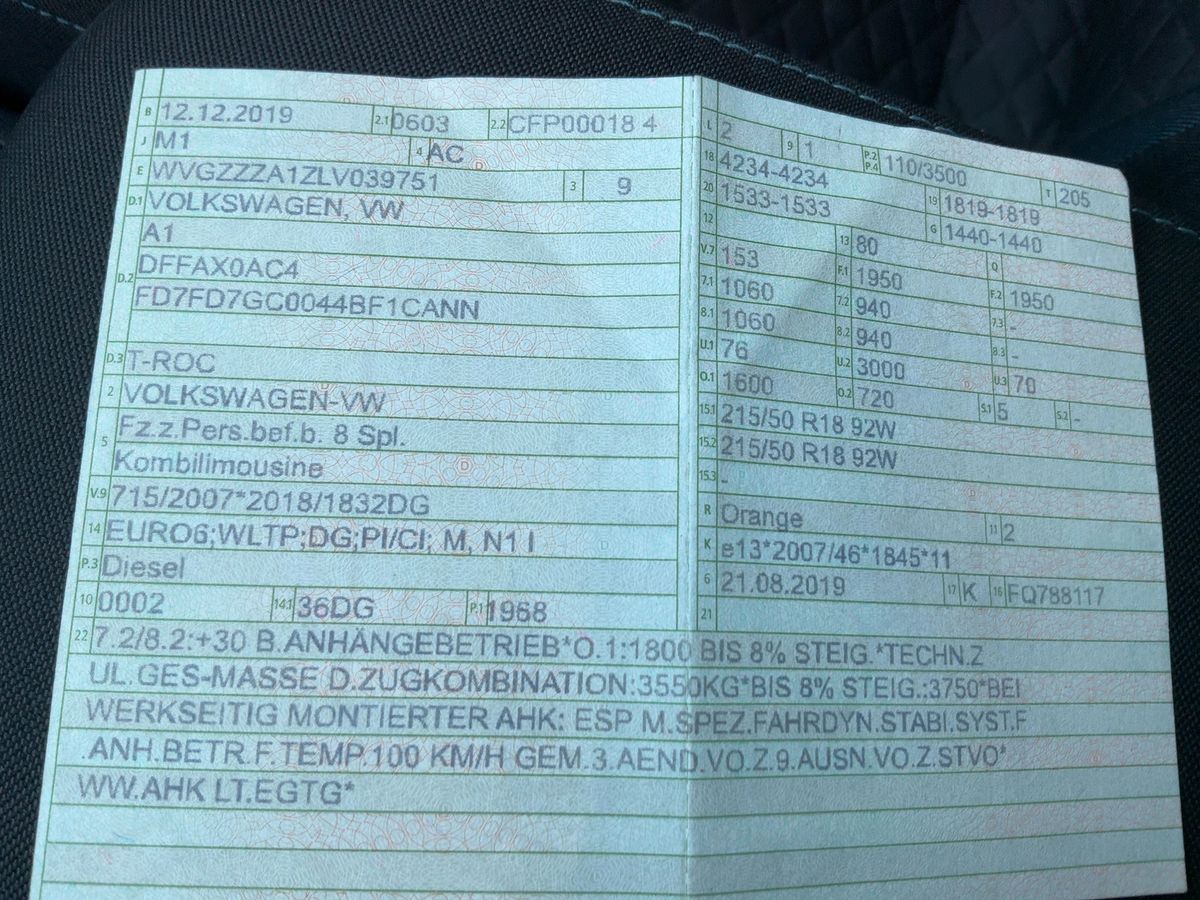 B 12.12.2019 2.1 0603 2.2 CFP00018 4
J M1 4 AC
E WVGZZZA1ZLV039751 3 9
D.1 VOLKSWAGEN, VW
D.2 A1
DFFAX0AC4
FD7FD7GC0044BF1CANN
D.3 T-ROC
2 VOLKSWAGEN-VW
5 Fz.z.Pers.bef.b. 8 Spl.
Kombilimousine
V.9 715/2007*2018/1832DG
14 EURO6;WLTP;DG;PI/CI; M, N1 I
P.3 Diesel
10 0002 14.1 36DG P.1 1968
L 2 9 1 P.2 P.4 110/3500 T 205
18 4234-4234 19 1819-1819
20 1533-1533 G 1440-1440
12 13 80 Q
V.7 153 F.1 1950 F.2 1950
7.1 1060 7.2 940 7.3 -
8.1 1060 8.2 940 8.3 -
U.1 76 U.2 3000 U.3 70
O.1 1600 O.2 720 S.1 5 S.2 -
15.1 215/50 R18 92W
15.2 215/50 R18 92W
15.3 -
R Orange 11 2
K e13*2007/46*1845*11
6 21.08.2019 17 K 16 FQ788117
21
22 7.2/8.2:+30 B.ANHÄNGEBETRIEB*O.1:1800 BIS 8% STEIG.*TECHN.Z
UL.GES-MASSE D.ZUGKOMBINATION:3550KG*BIS 8% STEIG.:3750*BEI
WERKSEITIG MONTIERTER AHK: ESP M.SPEZ.FAHRDYN.STABI.SYST.F
.ANH.BETR.F.TEMP.100 KM/H GEM.3.AEND.VO.Z.9.AUSN.VO.Z.STVO*
WW.AHK LT.EGTG*